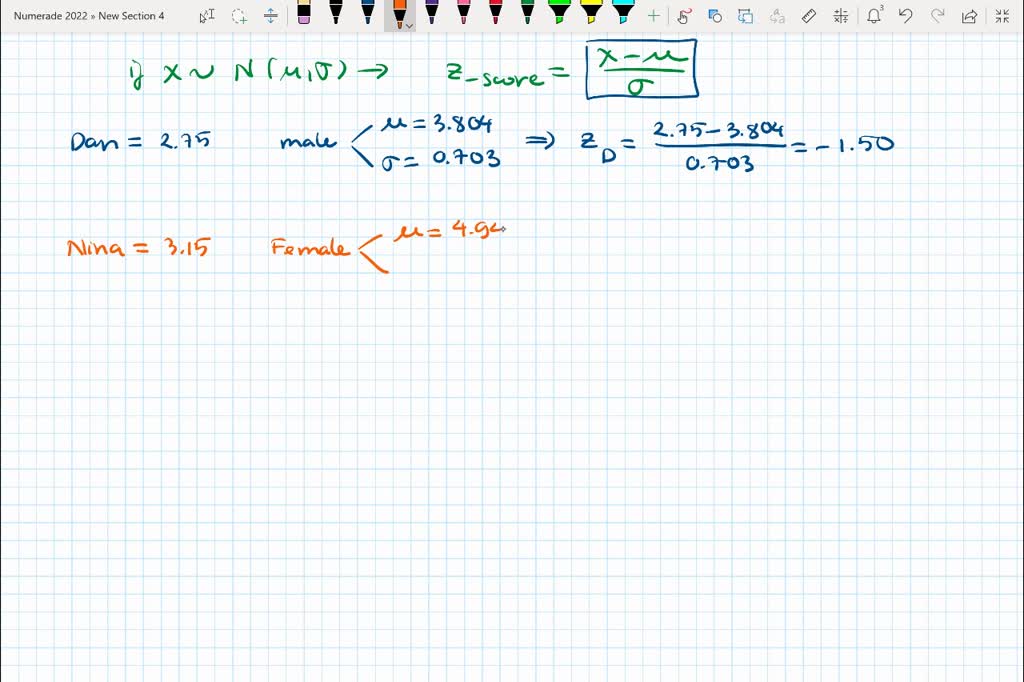 Numerade 2022 » New Section 4
if X ~ N(μ,σ) → z-score = x-μ/σ
Dan = 2.75 male μ = 3.804 σ = 0.703 ⇒ z_D = 2.75-3.804/0.703 = -1.50
Nina = 3.15 Female μ = 4.94